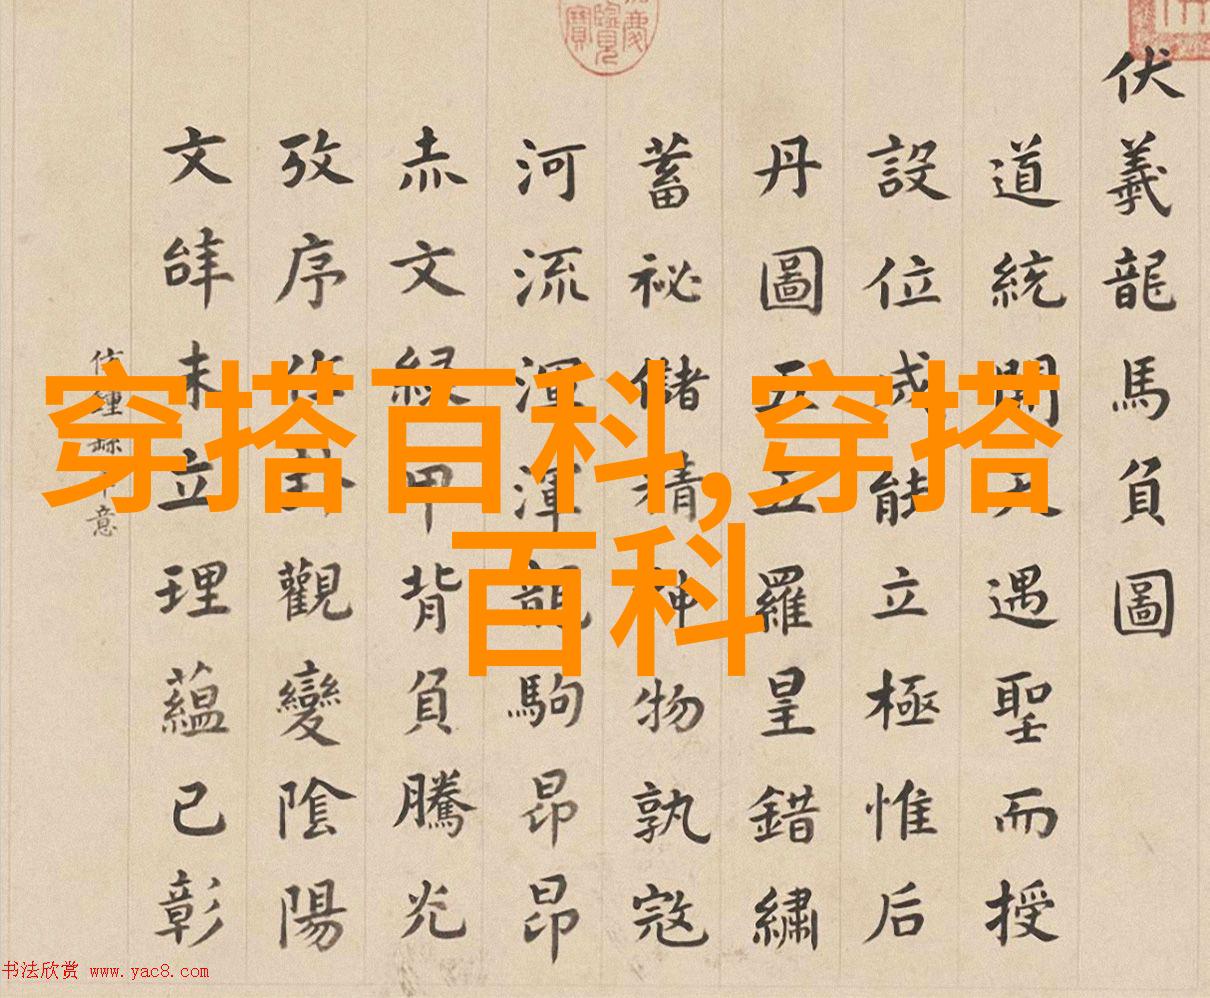 伏羲龍馬負圖
道統開天遇聖而授
設位成能立極惟后
丹圖五五羅星錯繡
蓄祕儲精神物孰寇
河流渾渾龍駒昂昂
赤文緑甲背負騰光
攷序作卦觀變陰陽
文辝未立理蘊已彰
仿鍾繇意
穿搭百科,穿搭
百科
书法欣赏 www.yac8.com